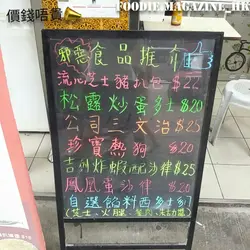 FOODIE.MAGAZINE_HK
價錢唔貴
邪惡食品推介
流心芝士豬扒包 $22
松露炒蛋多士 $20
公司三文治 $25
珍寶熱狗 $20
吉列炸蝦配沙律 $25
鳳凰蛋沙律 $20
自選餡料西多士 $20
(芝士,火腿,